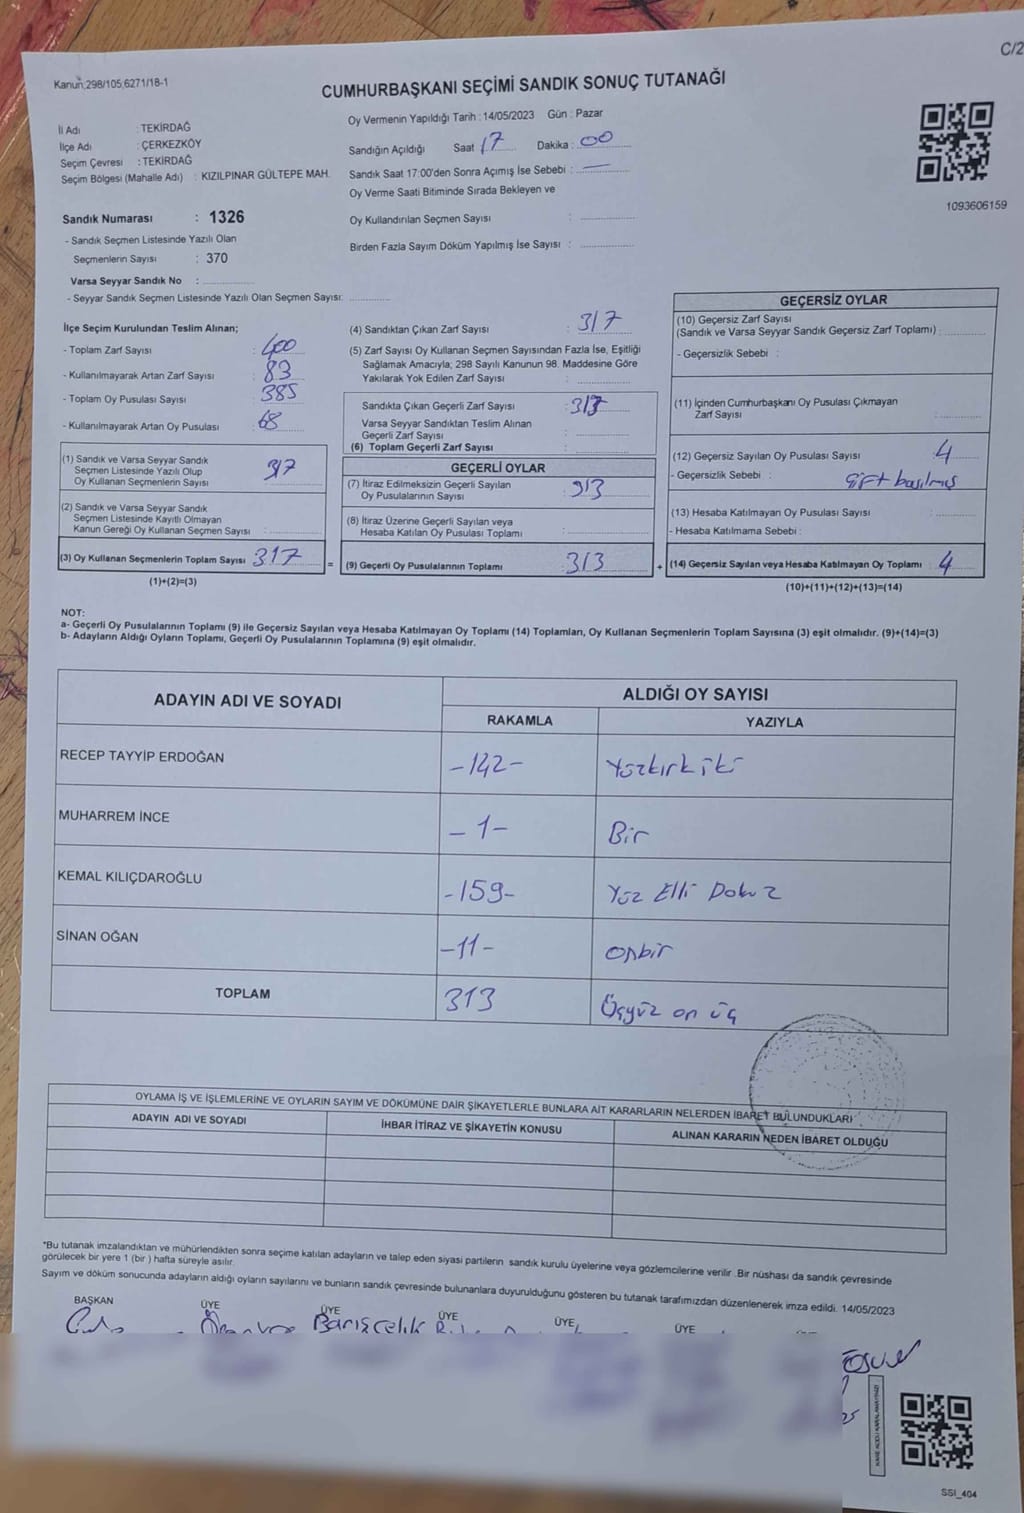 C/2
Kanun;298/105;6271/18-1
CUMHURBAŞKANI SEÇİMİ SANDIK SONUÇ TUTANAĞI
İl Adı : TEKİRDAĞ
İlçe Adı : ÇERKEZKÖY
Seçim Çevresi : TEKİRDAĞ
Seçim Bölgesi (Mahalle Adı) : KIZILPINAR GÜLTEPE MAH.
Sandık Numarası : 1326
- Sandık Seçmen Listesinde Yazılı Olan
Seçmenlerin Sayısı : 370
Varsa Seyyar Sandık No :
- Seyyar Sandık Seçmen Listesinde Yazılı Olan Seçmen Sayısı:
Oy Vermenin Yapıldığı Tarih : 14/05/2023 Gün : Pazar
Sandığın Açıldığı Saat 17 Dakika : 00
Sandık Saat 17:00'den Sonra Açımış İse Sebebi : —
Oy Verme Saati Bitiminde Sırada Bekleyen ve
Oy Kullandırılan Seçmen Sayısı :
Birden Fazla Sayım Döküm Yapılmış İse Sayısı :
1093606159
İlçe Seçim Kurulundan Teslim Alınan;
- Toplam Zarf Sayısı : 400
- Kullanılmayarak Artan Zarf Sayısı : 83
- Toplam Oy Pusulası Sayısı : 385
- Kullanılmayarak Artan Oy Pusulası : 68
(1) Sandık ve Varsa Seyyar Sandık
Seçmen Listesinde Yazılı Olup
Oy Kullanan Seçmenlerin Sayısı 317
(2) Sandık ve Varsa Seyyar Sandık
Seçmen Listesinde Kayıtlı Olmayan
Kanun Gereği Oy Kullanan Seçmen Sayısı :
(3) Oy Kullanan Seçmenlerin Toplam Sayısı 317
(1)+(2)=(3)
(4) Sandıktan Çıkan Zarf Sayısı : 317
(5) Zarf Sayısı Oy Kullanan Seçmen Sayısından Fazla İse, Eşitliği
Sağlamak Amacıyla; 298 Sayılı Kanunun 98. Maddesine Göre
Yakılarak Yok Edilen Zarf Sayısı :
Sandıkta Çıkan Geçerli Zarf Sayısı :
Varsa Seyyar Sandıktan Teslim Alınan
Geçerli Zarf Sayısı :
(6) Toplam Geçerli Zarf Sayısı :
GEÇERLİ OYLAR
(7) İtiraz Edilmeksizin Geçerli Sayılan
Oy Pusulalarının Sayısı : 313
(8) İtiraz Üzerine Geçerli Sayılan veya
Hesaba Katılan Oy Pusulası Toplamı :
= (9) Geçerli Oy Pusulalarının Toplamı : 313
GEÇERSİZ OYLAR
(10) Geçersiz Zarf Sayısı
(Sandık ve Varsa Seyyar Sandık Geçersiz Zarf Toplamı) :
- Geçersizlik Sebebi :
(11) İçinden Cumhurbaşkanı Oy Pusulası Çıkmayan
Zarf Sayısı :
(12) Geçersiz Sayılan Oy Pusulası Sayısı : 4
- Geçersizlik Sebebi : Çift basılmış
(13) Hesaba Katılmayan Oy Pusulası Sayısı :
- Hesaba Katılmama Sebebi :
+ (14) Geçersiz Sayılan veya Hesaba Katılmayan Oy Toplamı : 4
(10)+(11)+(12)+(13)=(14)
NOT:
a- Geçerli Oy Pusulalarının Toplamı (9) ile Geçersiz Sayılan veya Hesaba Katılmayan Oy Toplamı (14) Toplamları, Oy Kullanan Seçmenlerin Toplam Sayısına (3) eşit olmalıdır. (9)+(14)=(3)
b- Adayların Aldığı Oyların Toplamı, Geçerli Oy Pusulalarının Toplamına (9) eşit olmalıdır.
ADAYIN ADI VE SOYADI ALDIĞI OY SAYISI
RAKAMLA YAZIYLA
RECEP TAYYİP ERDOĞAN -142- Yüzkırkiki
MUHARREM İNCE -1- Bir
KEMAL KILIÇDAROĞLU -159- Yüz Elli Dokuz
SİNAN OĞAN -11- Onbir
TOPLAM 313 Üçyüz on üç
OYLAMA İŞ VE İŞLEMLERİNE VE OYLARIN SAYIM VE DÖKÜMÜNE DAİR ŞİKAYETLERLE BUNLARA AİT KARARLARIN NELERDEN İBARET BULUNDUKLARI
ADAYIN ADI VE SOYADI İHBAR İTİRAZ VE ŞİKAYETİN KONUSU ALINAN KARARIN NEDEN İBARET OLDUĞU
*Bu tutanak imzalandıktan ve mühürlendikten sonra seçime katılan adayların ve talep eden siyasi partilerin sandık kurulu üyelerine veya gözlemcilerine verilir. Bir nüshası da sandık çevresinde
görülecek bir yere 1 (bir ) hafta süreyle asılır.
Sayım ve döküm sonucunda adayların aldığı oyların sayılarını ve bunların sandık çevresinde bulunanlara duyurulduğunu gösteren bu tutanak tarafımızdan düzenlenerek imza edildi. 14/05/2023
BAŞKAN ÜYE ÜYE ÜYE ÜYE ÜYE
Barışcelik
SSI_404